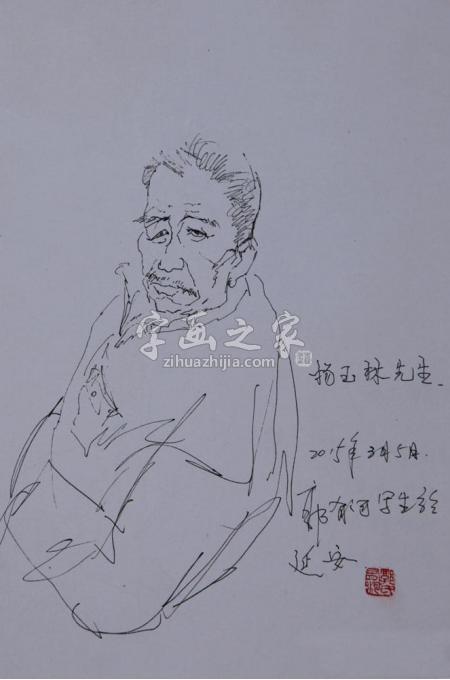 字画之家
zihuazhijia.com
杨玉珠先生.
2015年3月5月.
郭有河写生於
延安